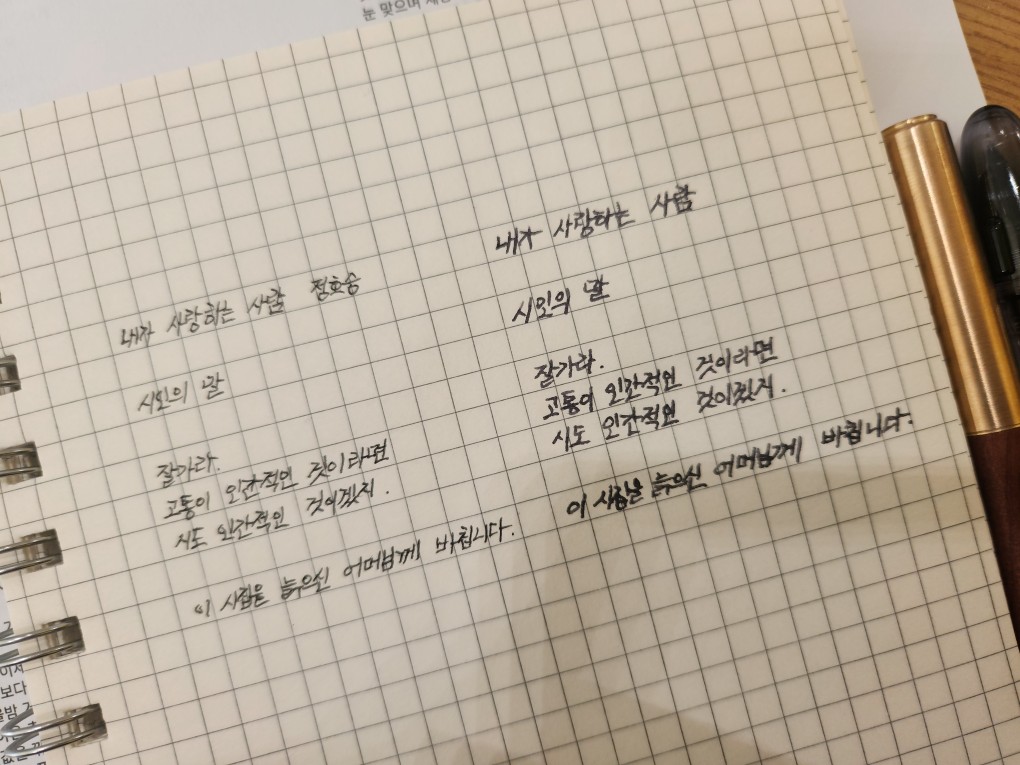 눈 맞으며
내가 사랑하는 사람 정호승
시인의 말
잘가라.
고통이 인간적인 것이라면
시도 인간적인 것이겠지.
이 시집을 늙으신 어머님께 바칩니다.
내가 사랑하는 사람
시인의 말
잘가라.
고통이 인간적인 것이라면
시도 인간적인 것이겠지.
이 시집을 늙으신 어머님께 바칩니다.
보다